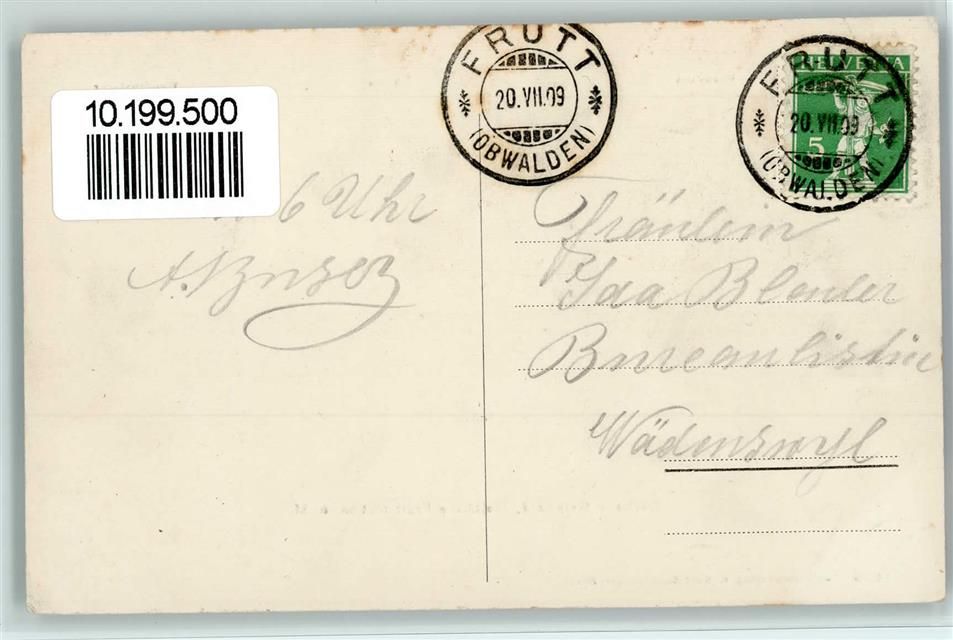 FRUTT
20.VII.09
(OBWALDEN)
HELVETIA
5
FRUTT
20.VII.09
(OBWALDEN)
10.199.500
6 Uhr
Fräulein
Ida
Bureaulistin
Wädenswyl